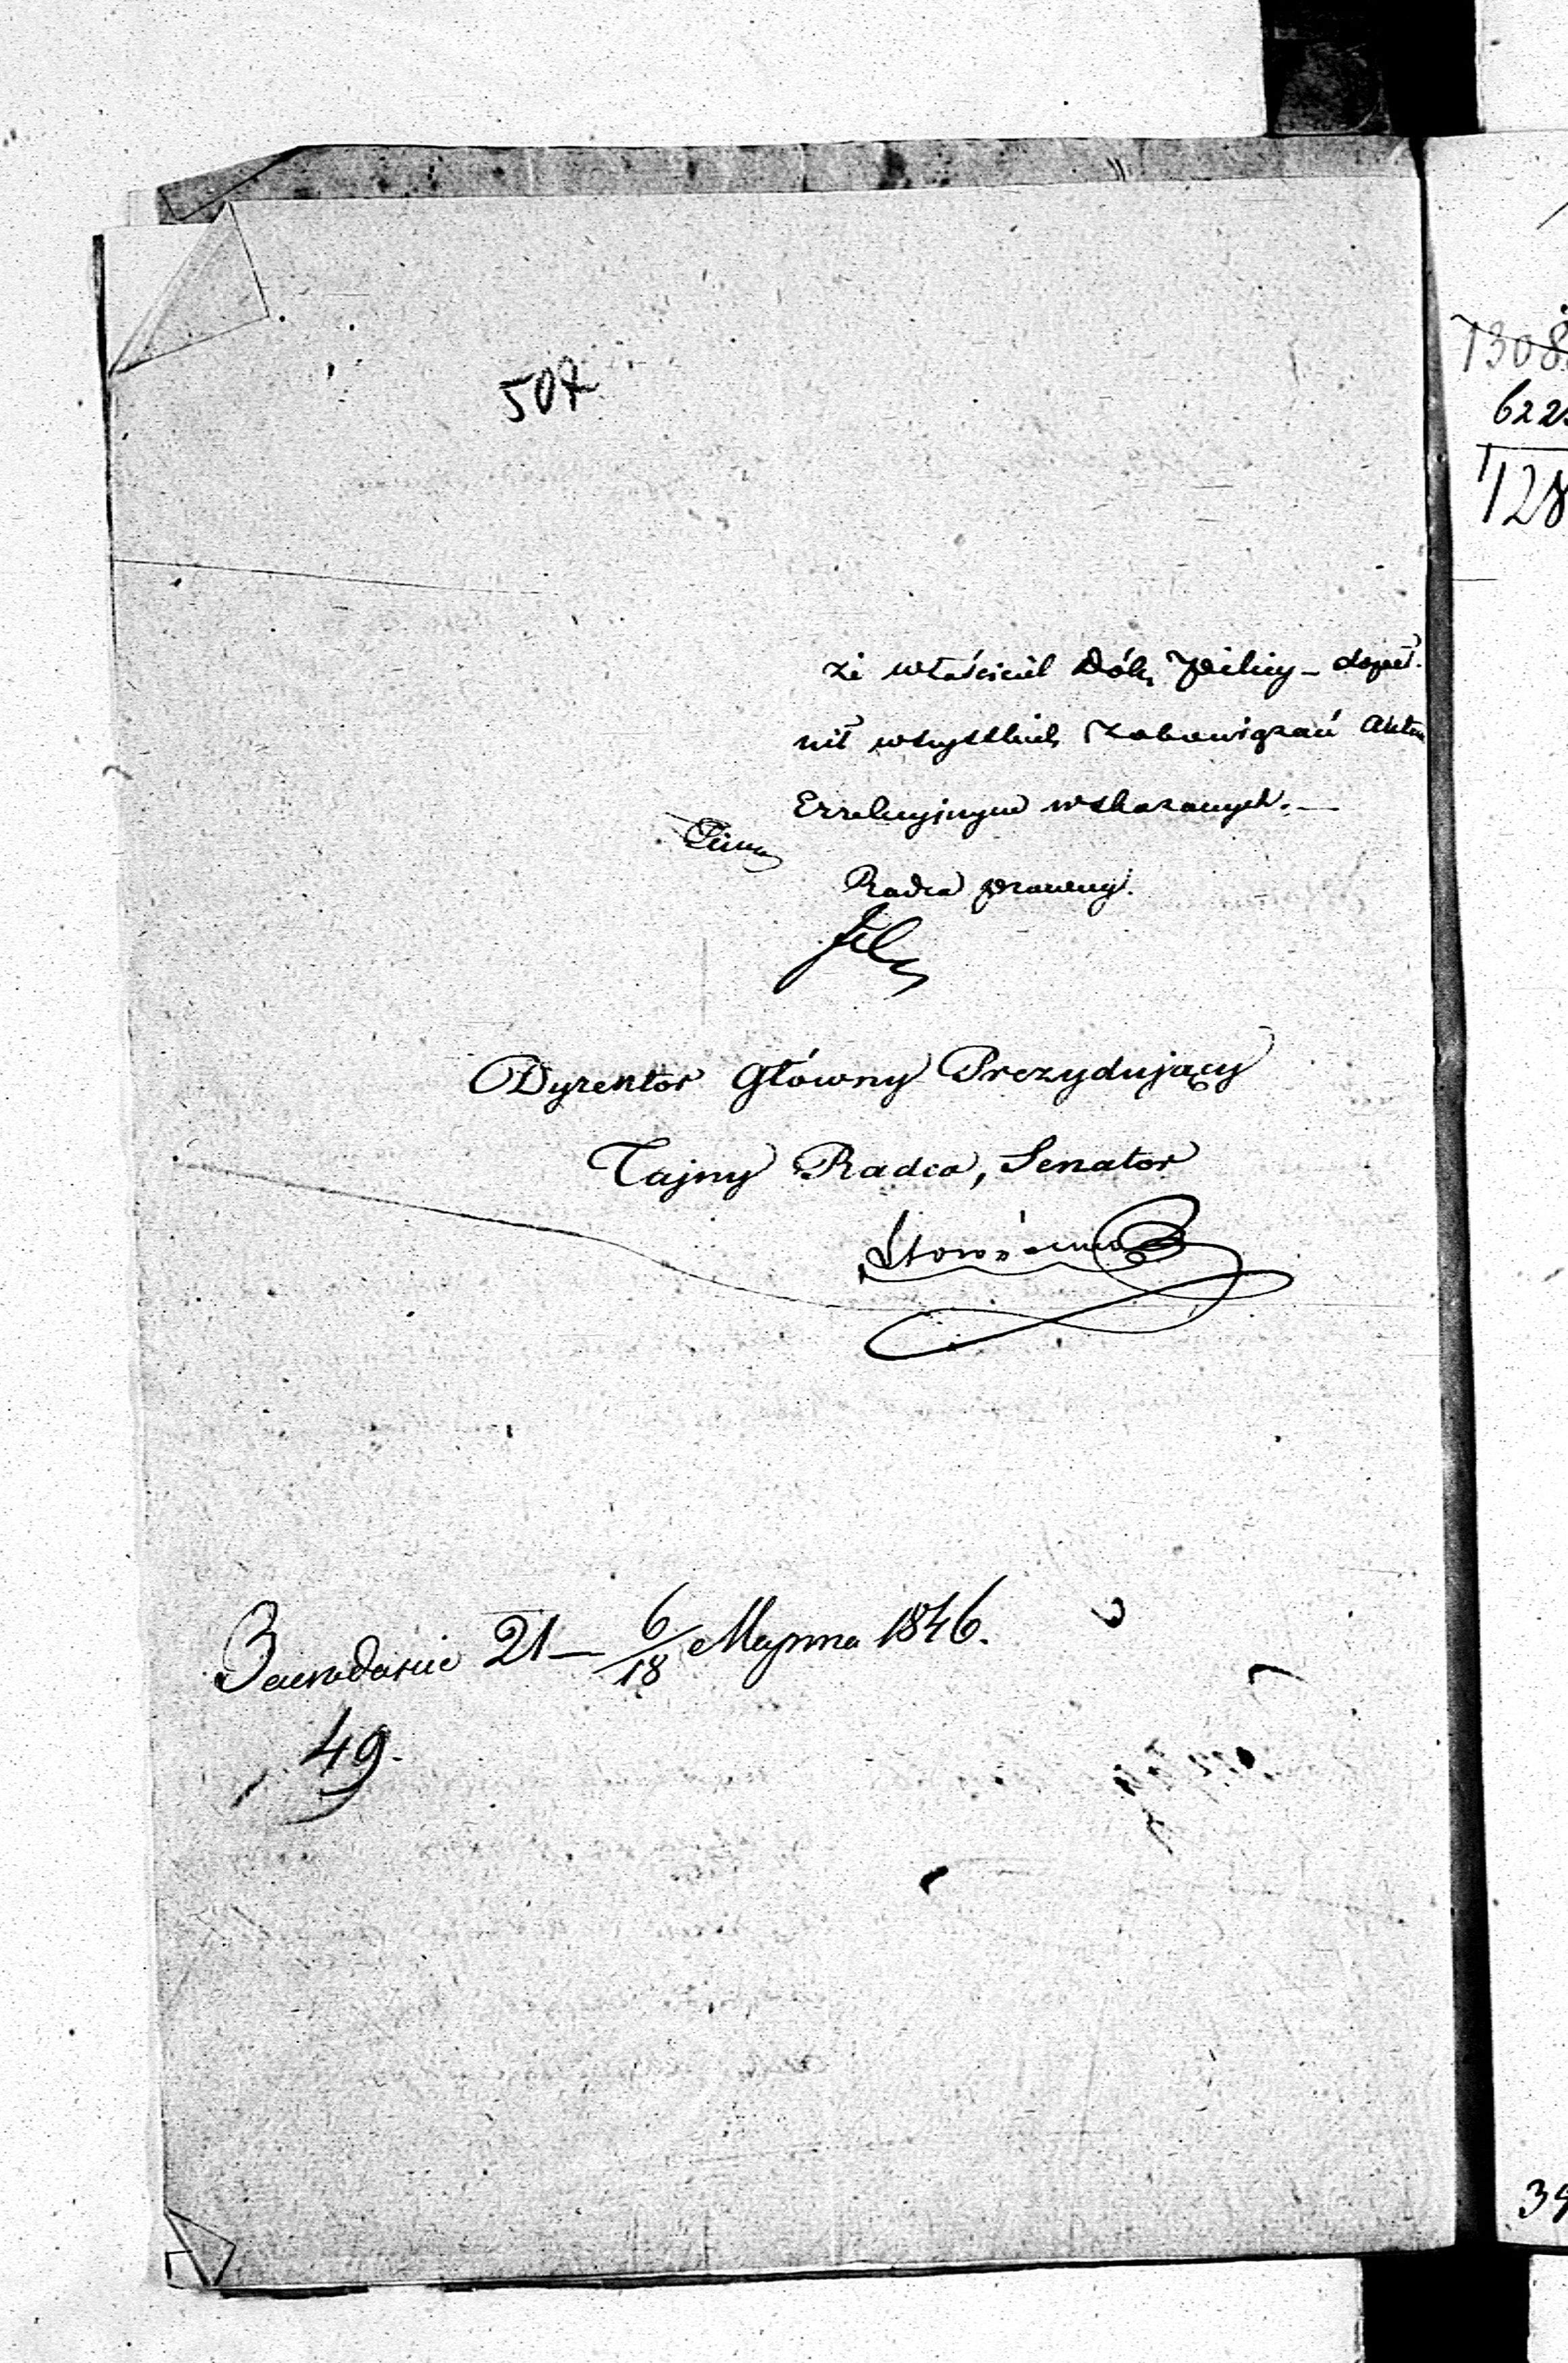 507
że właściciel Dóbr Pilicy – dopeł-
nił wszystkich Zobowiązań Aktem
Erekcyjnym wskazanych. —
Radca prawny.
Dyrektor Główny Prezydujący
Tajny Radca, Senator
Засѣданіе 21 — 6/18 Марта 1846.
49.
1308
622
128